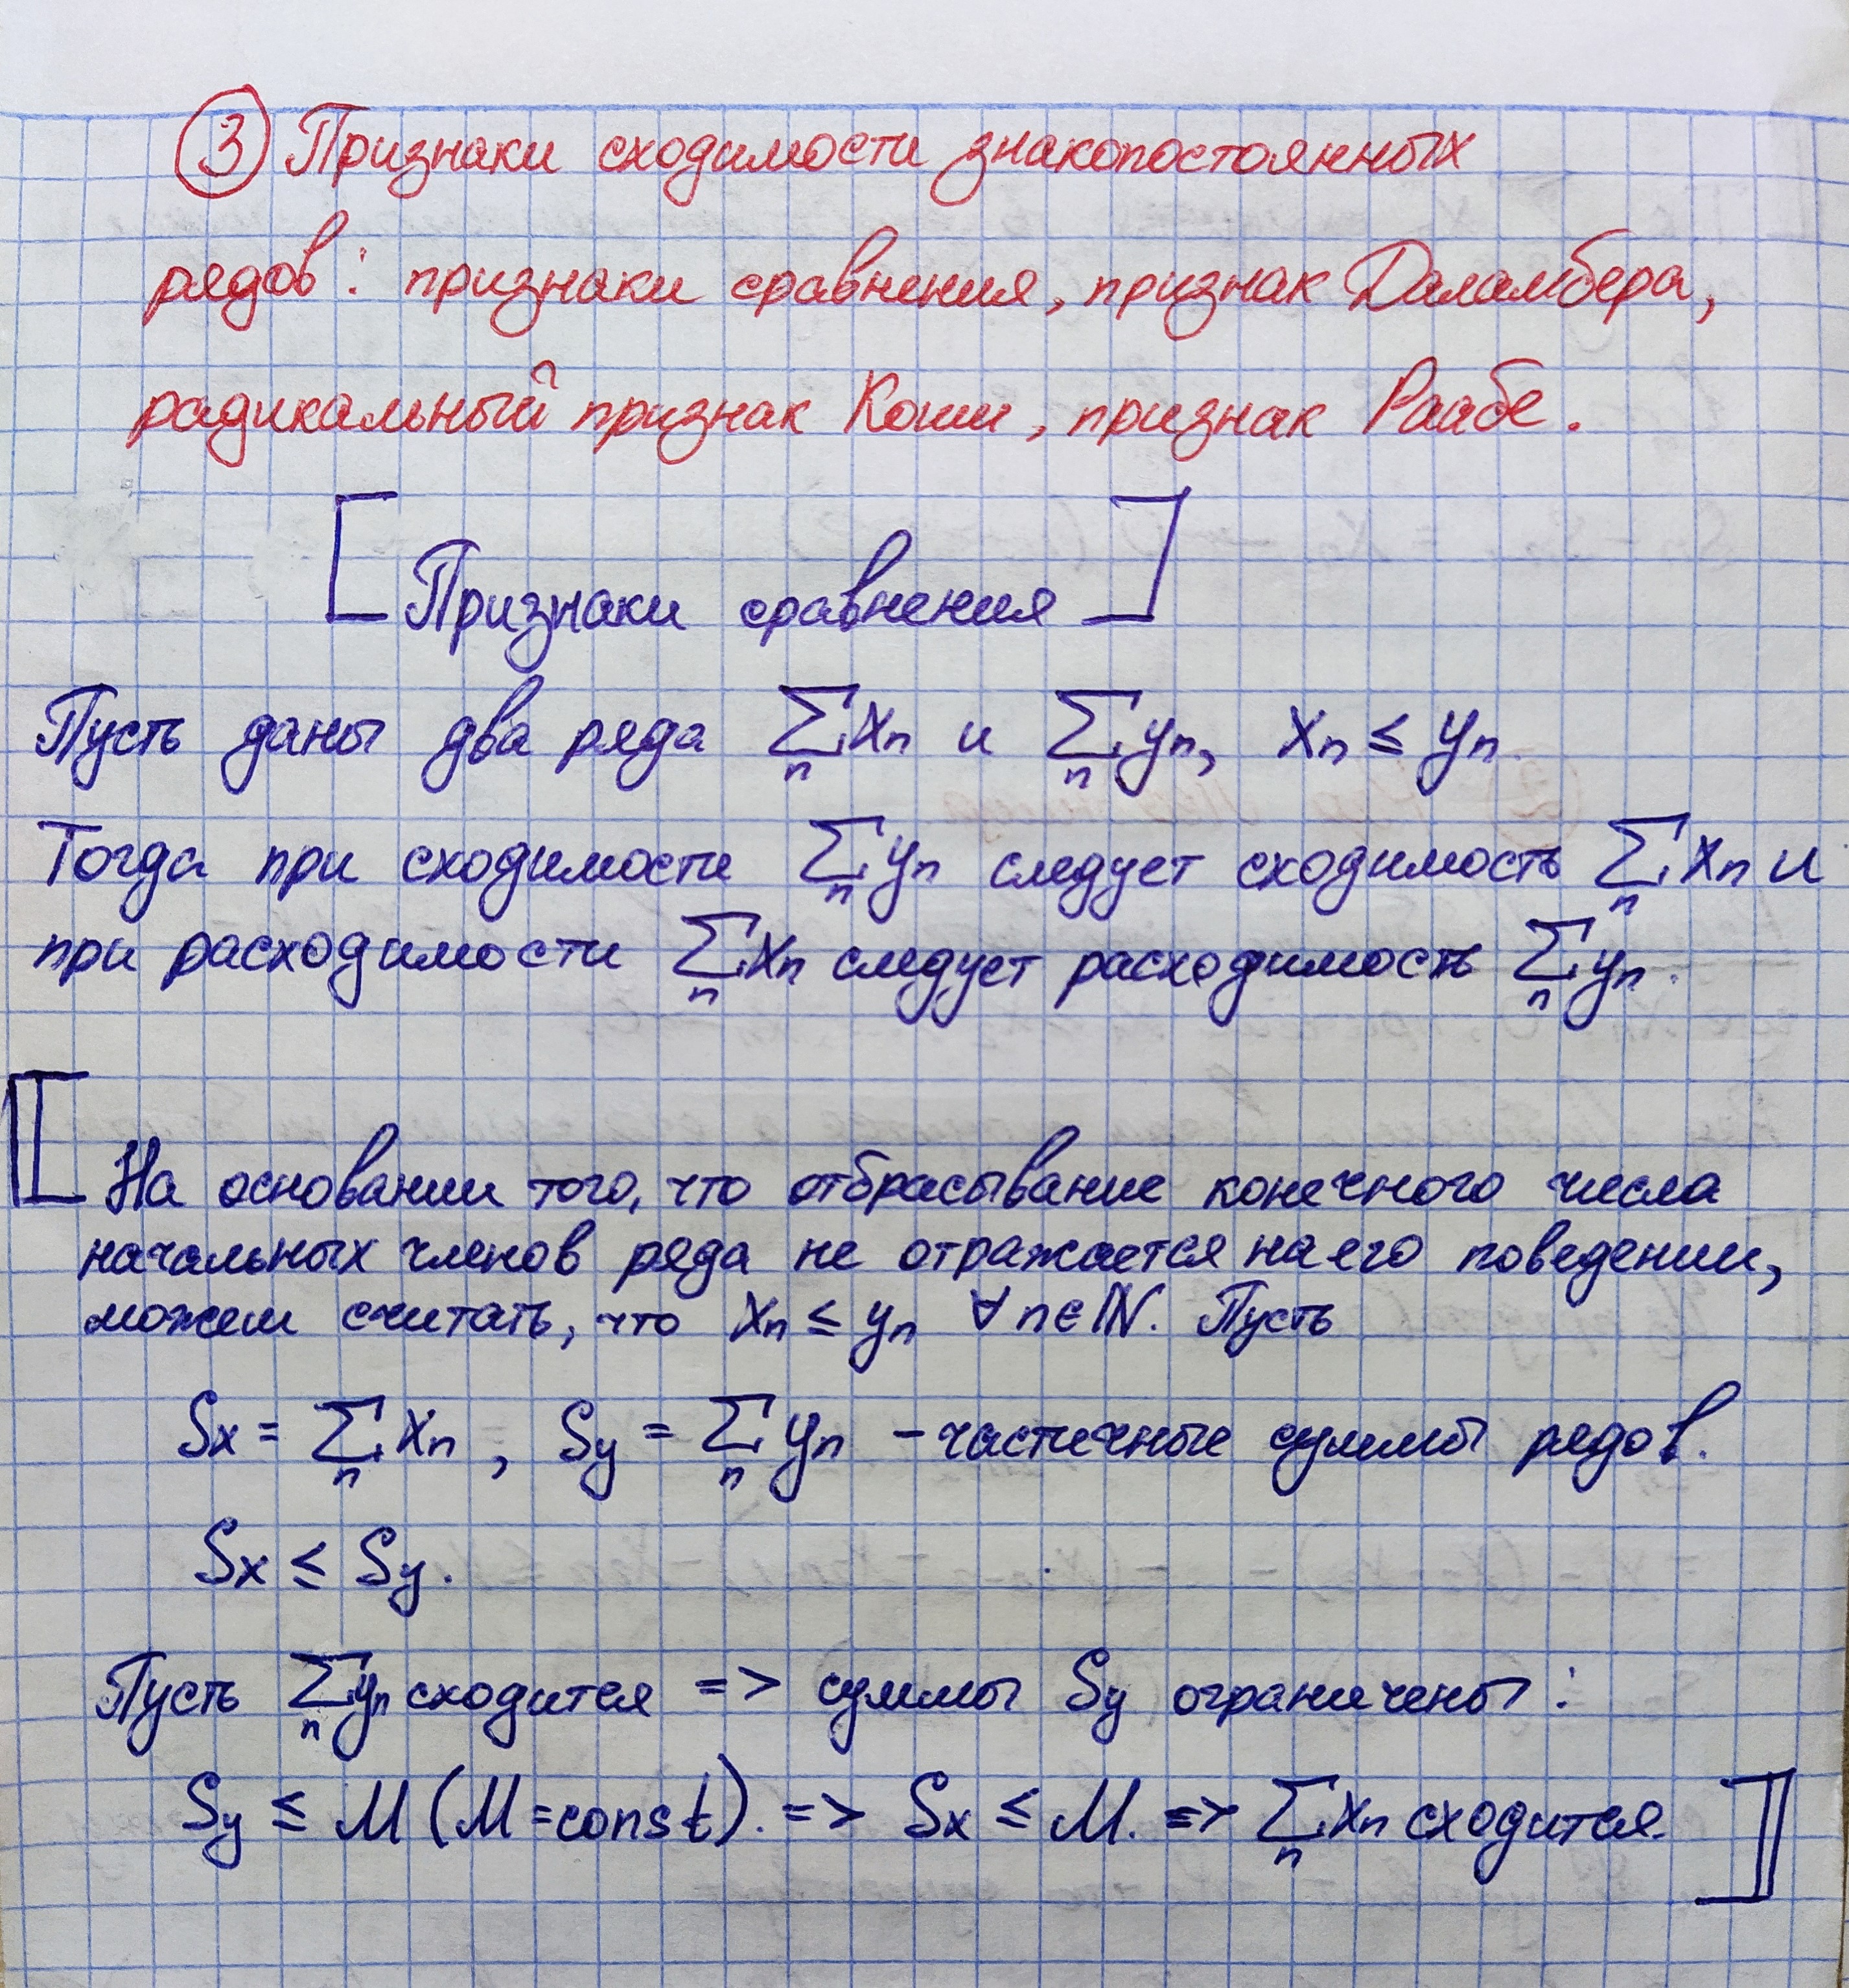 ③ Признаки сходимости знакопостоянных
рядов: признаки сравнения, признак Даламбера,
радикальный признак Коши, признак Раабе.
[Признаки сравнения]
Пусть даны два ряда ∑ₙ xₙ и ∑ₙ yₙ, xₙ ≤ yₙ.
Тогда при сходимости ∑ₙ yₙ следует сходимость ∑ₙ xₙ и
при расходимости ∑ₙ xₙ следует расходимость ∑ₙ yₙ.
⟦На основании того, что отбрасывание конечного числа
начальных членов ряда не отражается на его поведении,
можем считать, что xₙ ≤ yₙ ∀ n ∈ ℕ. Пусть
Sx = ∑ₙ xₙ, Sy = ∑ₙ yₙ – частичные суммы рядов.
Sx ≤ Sy.
Пусть ∑ₙ yₙ сходится => суммы Sy ограничены:
Sy ≤ M (M = const). => Sx ≤ M. => ∑ₙ xₙ сходится.⟧